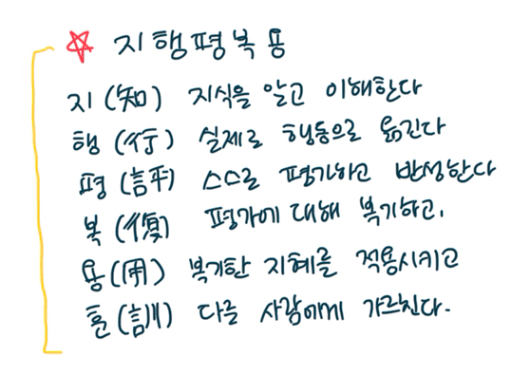 지행평복용
지(知) 지식을 알고 이해한다
행(行) 실제로 행동으로 옮긴다
평(評) 스스로 평가하고 반성한다
복(復) 평가에 대해 복기하고,
용(用) 복기한 지혜를 적용시키고
훈(訓) 다른 사람에게 가르친다.